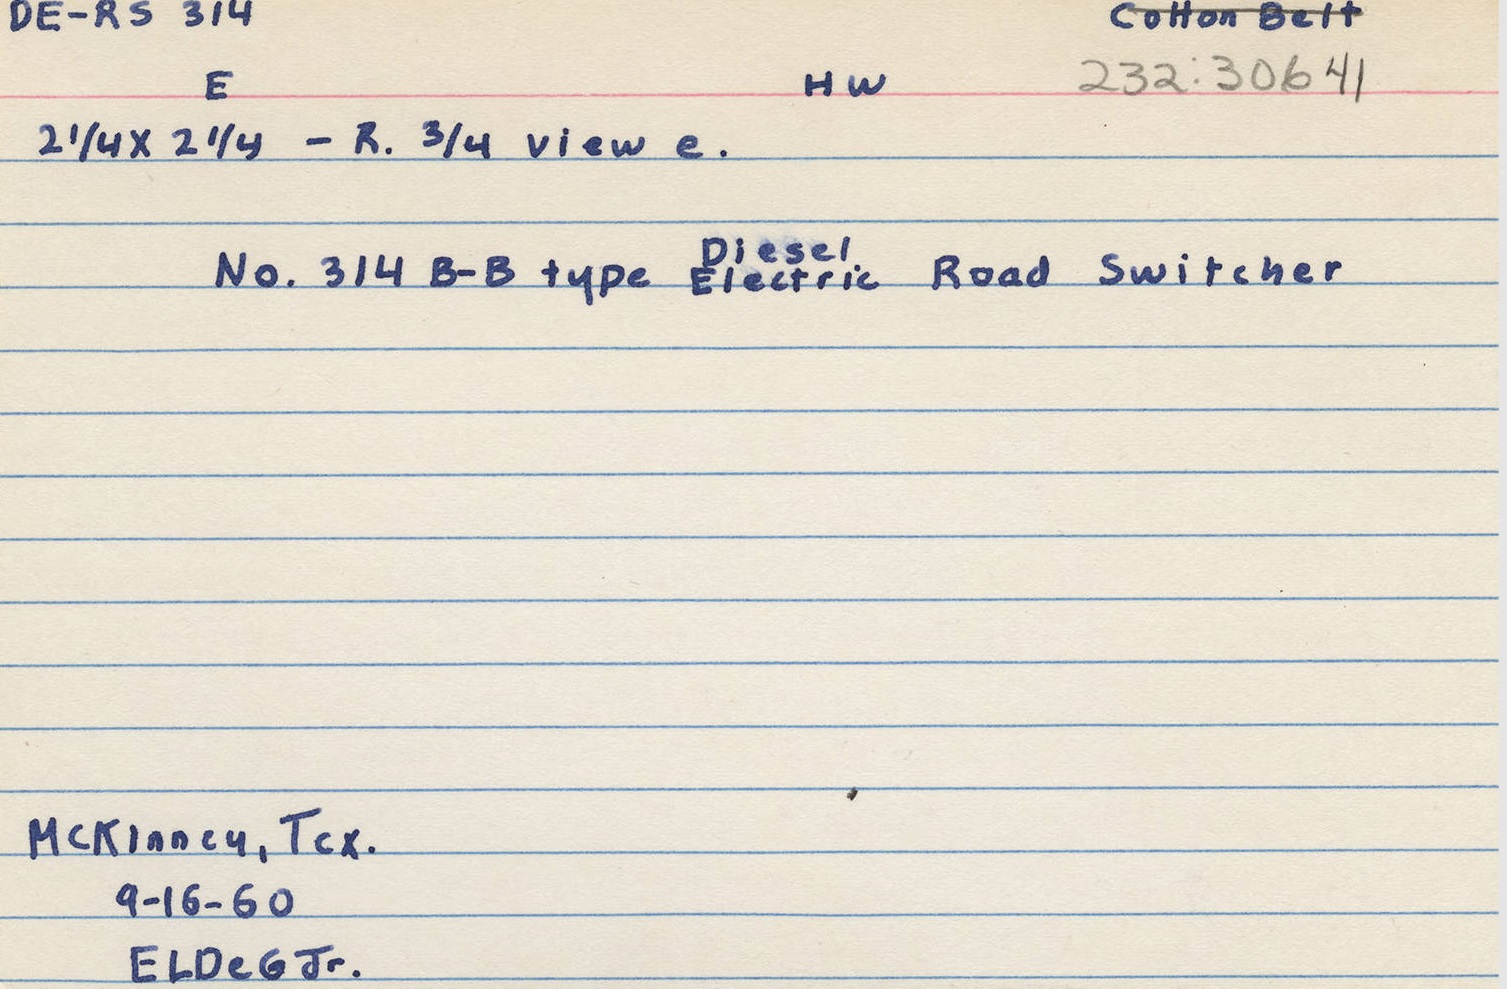 DE-RS 314 Cotton Belt
E HW 232:30641
2 1/4 X 2 1/4 - R. 3/4 view e.
No. 314 B-B type Diesel. Electric Road Switcher
McKinney, Tex.
9-16-60
ELDeGJr.